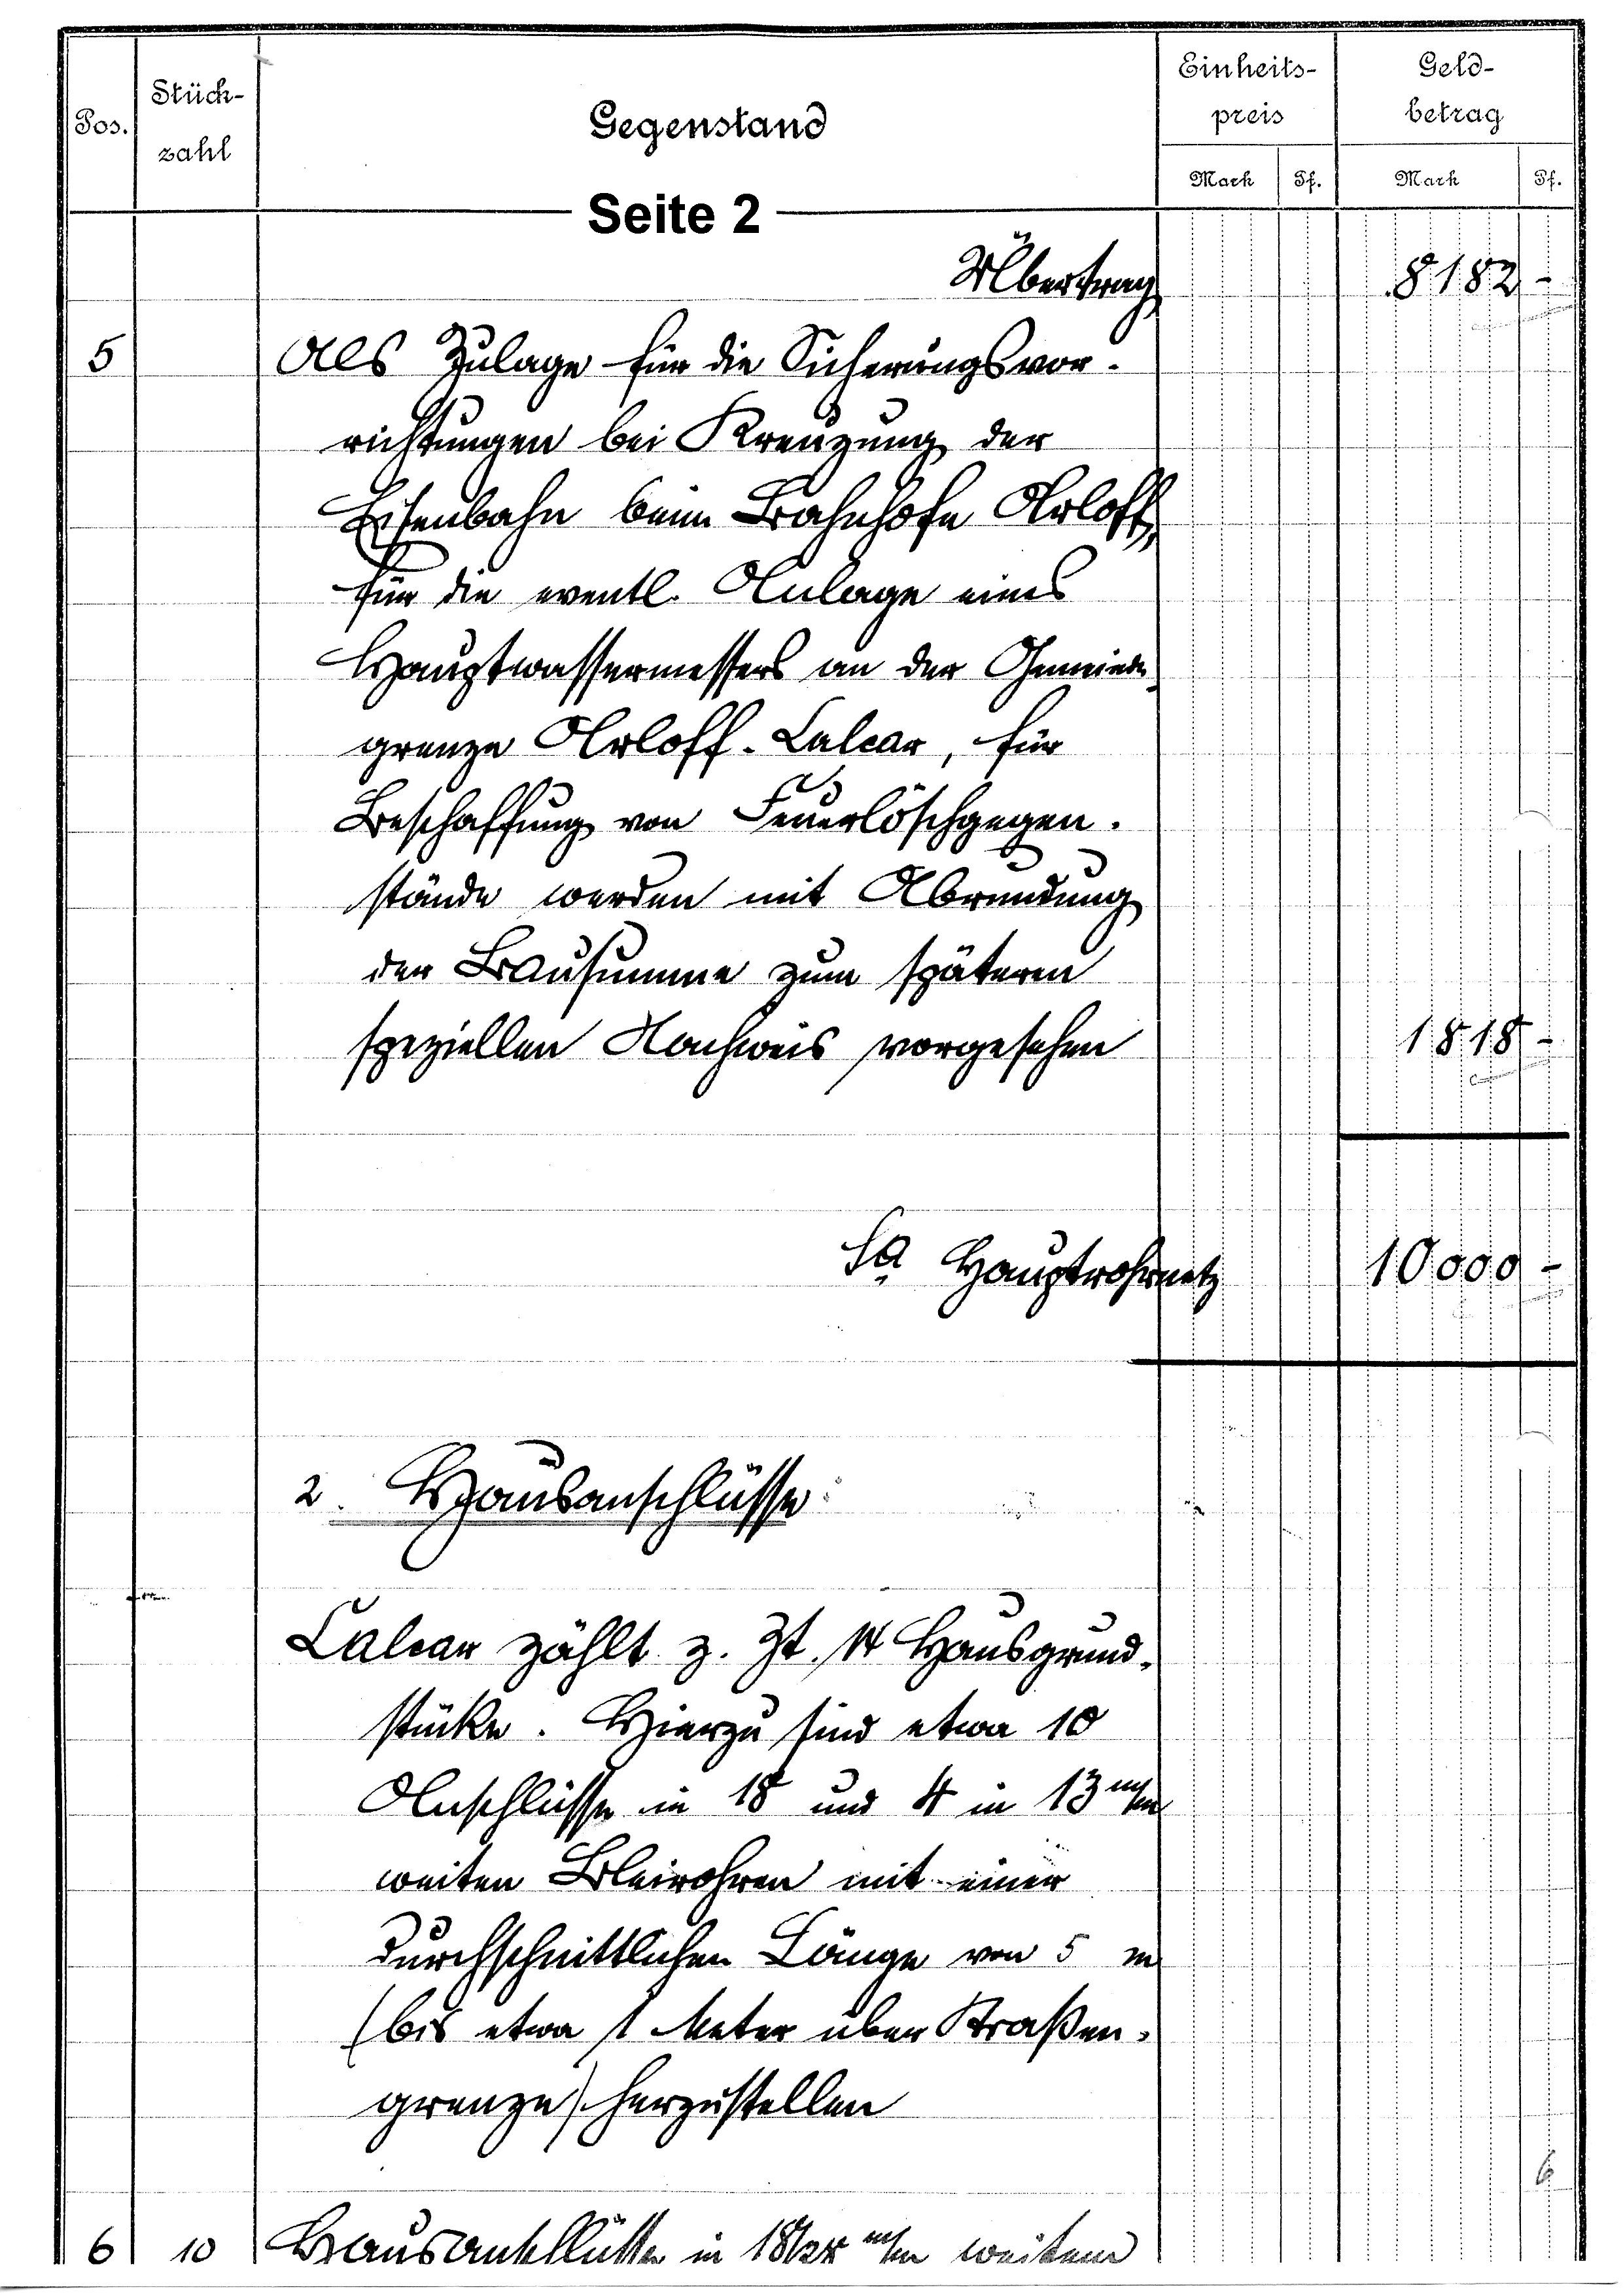 Pos.
Stück-
zahl
Gegenstand
Einheits-
preis
Geld-
betrag
Mark Pf. Mark Pf.
Seite 2
Übertrag 8182 -
5 Als Zulage für die Sicherungsvor-
richtungen bei Kreuzung der
Eisenbahn beim Bahnhofe Arloff,
für die eventl. Anlage eines
Hauptwassermessers an der Gemeinde
grenze Arloff-Calcar, für
Beschaffung von Feuerlöschgegen-
stände werden mit Abrundung
der Bausumme zum späteren
speziellen Nachweis vorgesehen 1818 -
Sa Hauptrohrnetz 10000 -
2. Hausanschlüsse:
Calcar zählt z. Zt. 14 Hausgrund-
stücke. Hierzu sind etwa 10
Anschlüsse in 18 und 4 in 13 m/m
weiten Bleirohren mit einer
durchschnittlichen Länge von 5 m
(bis etwa 1 Meter über Straßen-
grenze) herzustellen
6
6 10 Hausanschlüsse in m/m weitem